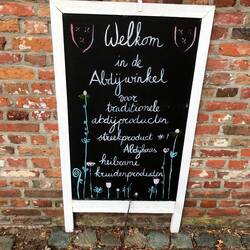 Welkom
in de
Abdijwinkel
voor
traditionele
abdijproducten
streekproduct
Abdijkaas
heilzame
kruidenproducten